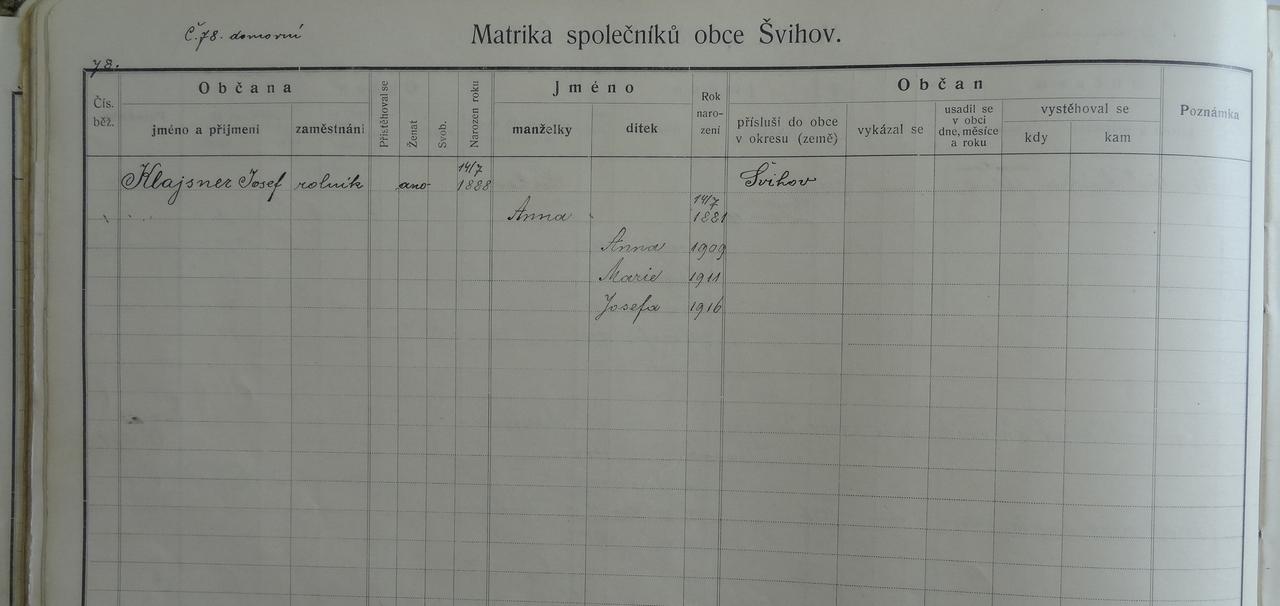 Č.78. domovní
Matrika společníků obce Švihov.
78.
Čís. běž.
Občana
jméno a příjmení
zaměstnání
Přistěhoval se
Ženat
Svob.
Narozen roku
Jméno
manželky
dítek
Rok naro- zení
Občan
přísluší do obce v okresu (země)
vykázal se
usadil se v obci dne, měsíce a roku
vystěhoval se
kdy
kam
Poznámka
Klajsner Josef rolník ano 14/7 1888 Švihov
Anna 14/7 1881
Anna 1909
Marie 1911
Josefa 1916